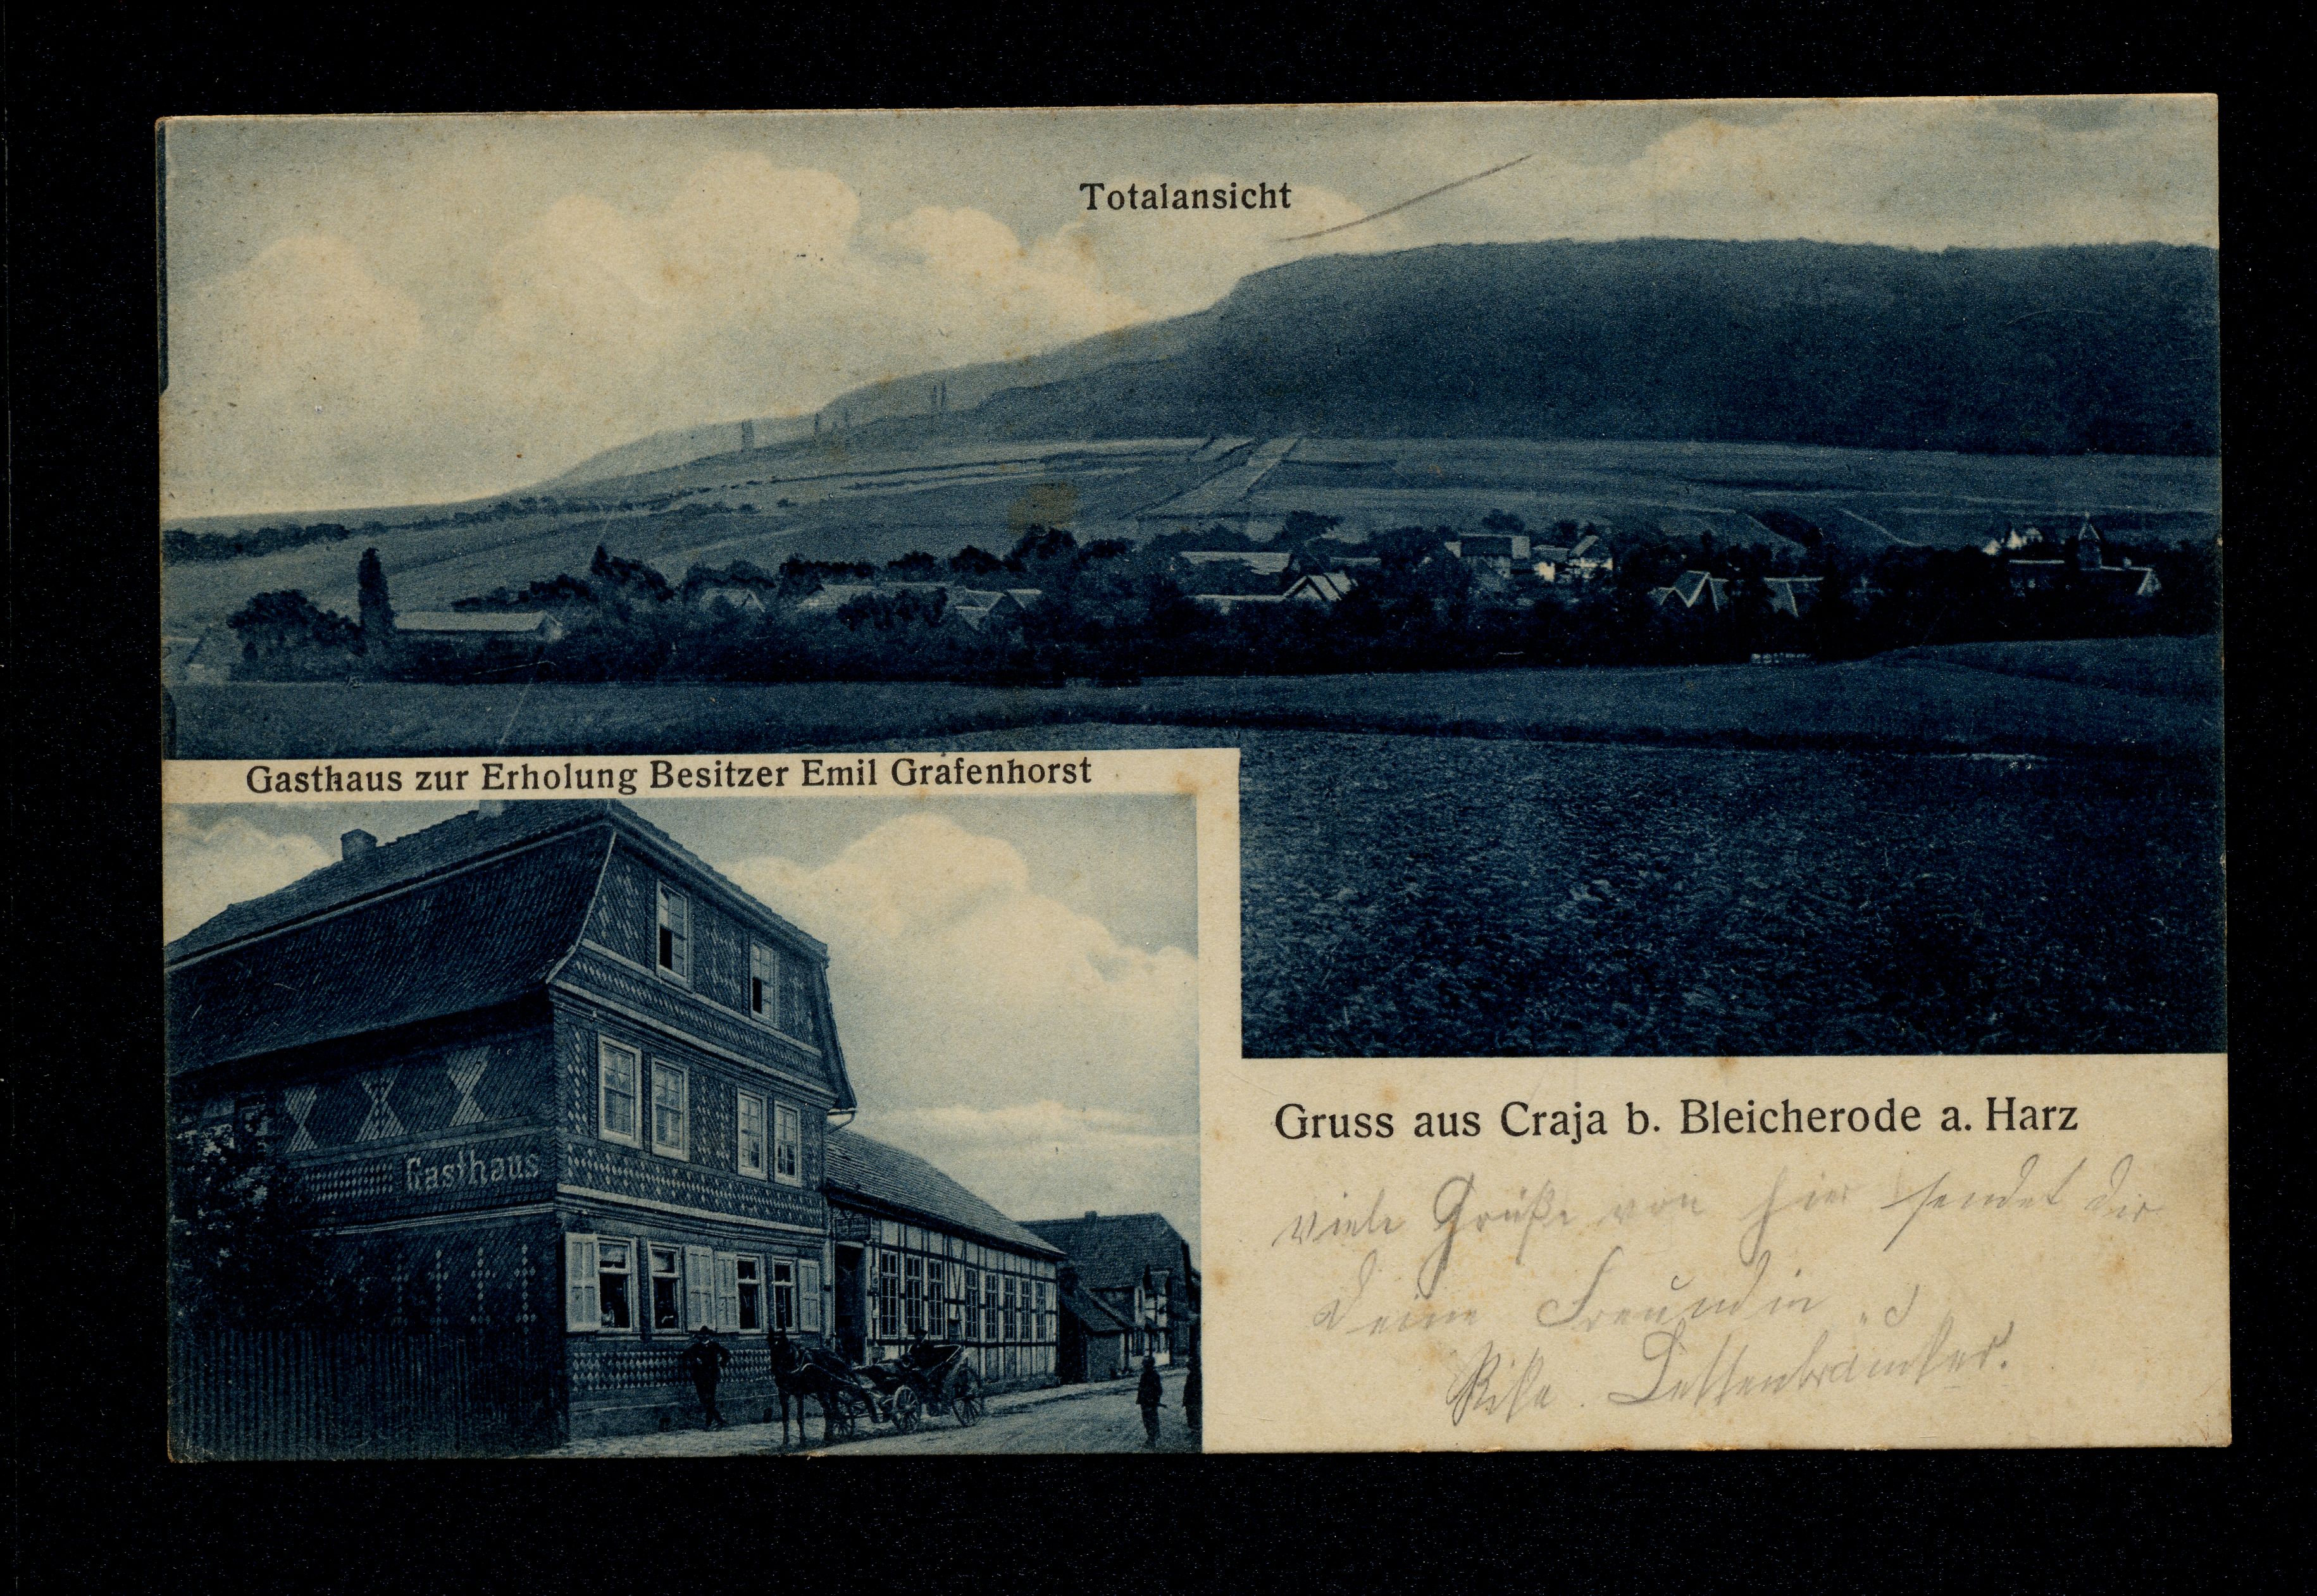 Totalansicht
Gasthaus zur Erholung Besitzer Emil Grafenhorst
Gasthaus
Gruss aus Craja b. Bleicherode a. Harz
viele Grüße von hier sendet dir
deine Freundin